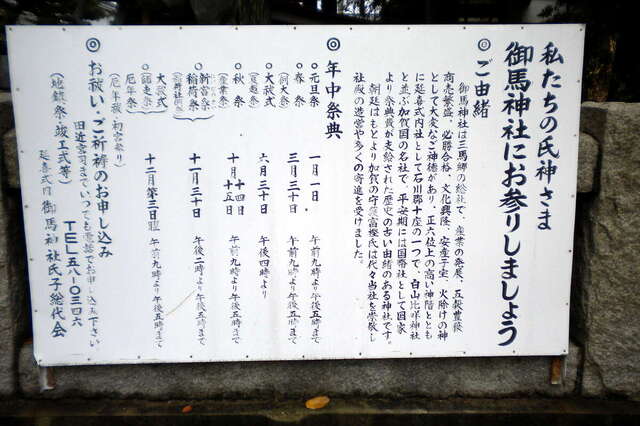 私たちの氏神さま
御馬神社にお参りしましょう
◎ご由緒
御馬神社は三馬郷の総社で、産業の発展、五穀豊穣
商売繁盛、必勝合格、文化興隆、安産子宝、火除けの神
として大変なご神徳があり、正六位上の高い神階ととも
に延喜式内社として石川郡十座の一つで、白山比咩神社
と並ぶ加賀国の名社で、平安期には国幣社として国家
より祭典費が支給された歴史の古い由緒のある神社です。
朝廷はもとより加賀の守護富樫氏は代々当社を崇敬し
社殿の造営や多くの寄進を受けました。
◎年中祭典
○元旦祭 一月一日 午前九時より午後五時まで
○春祭(祈年祭) 三月三十日 午前九時より午後五時まで
○大祓式(夏越祭) 六月三十日 午後四時より
○秋祭(産業祭) 十月十四日十五日 午前九時より午後五時まで
○新嘗祭 稲荷祭 十一月三十日 午後二時より午後五時まで
○大祓式(師走祭) 厄年祭 十二月第三日曜 午前九時より午後五時まで
(厄年祓・初宮参り)
◎お祓い・ご祈祷のお申し込み
田近宮司まで、いつでも電話でお申し込み下さい。
(地鎮祭・竣工式等) TEL五八-〇三四六
延喜式内 御馬神社氏子総代会